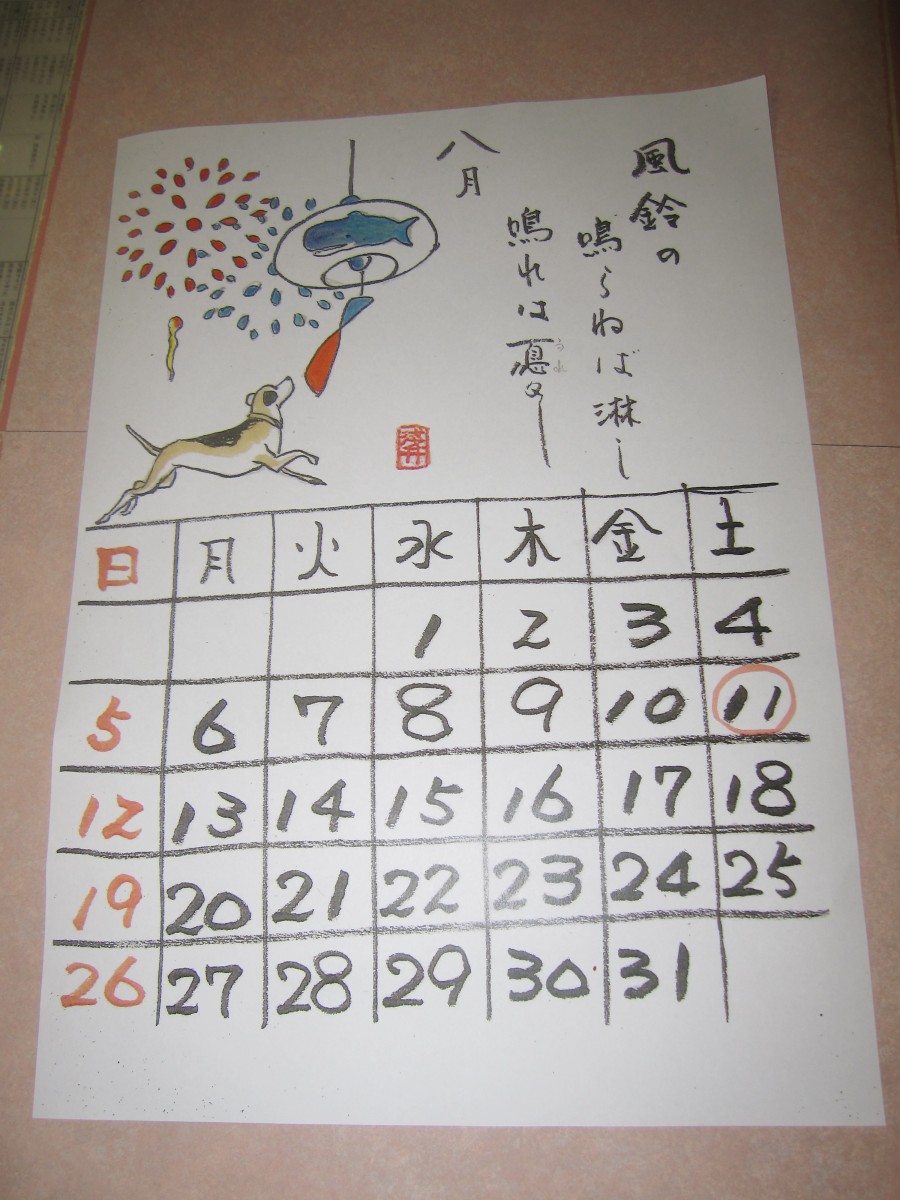 風鈴の
鳴らねば淋し
鳴れは憂し
うれ
八月
日 月 火 水 木 金 土
1 2 3 4
5 6 7 8 9 10 11
12 13 14 15 16 17 18
19 20 21 22 23 24 25
26 27 28 29 30 31